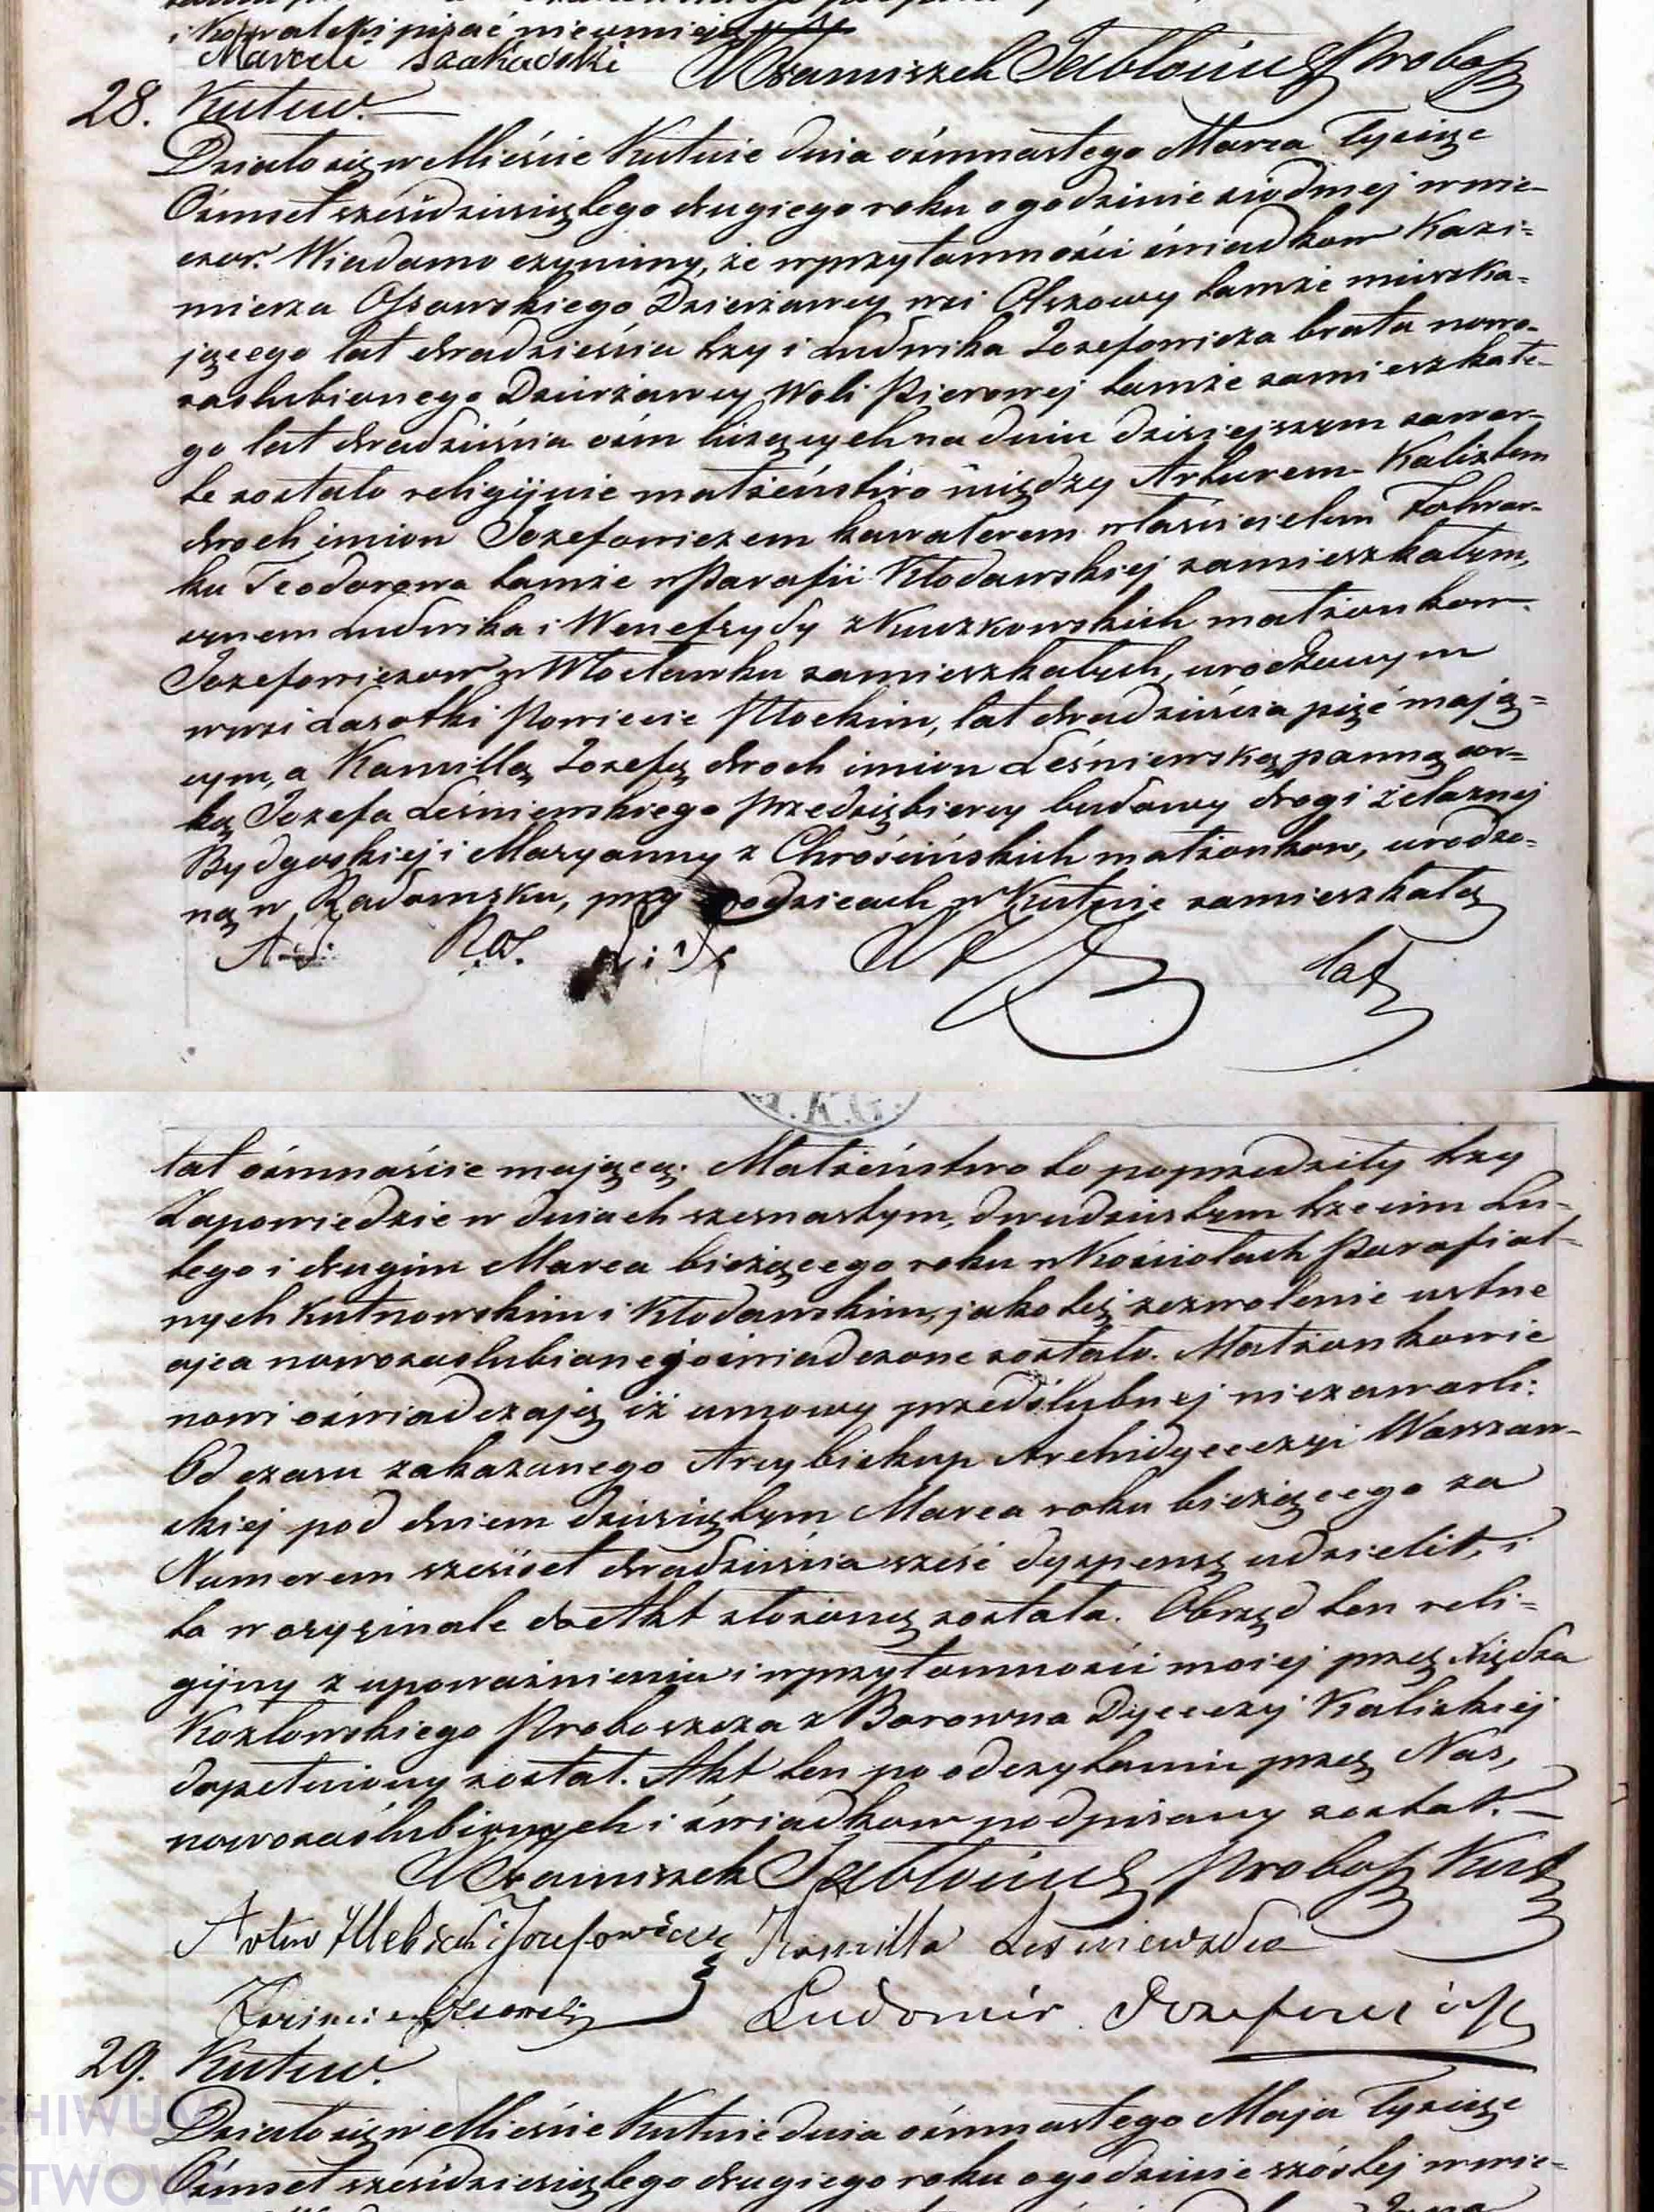 i Kowalski pisać nieumieją
Marceli Szatkowski Franciszek Jabłoński Probosz
28. Kutno.
Działo się w Mieście Kutnie dnia ósmnastego Marca Tysiąc
Ośmset sześćdziesiątego drugiego roku o godzinie siódmej w wie-
czor. Wiadomo czynimy, że w przytomności świadkow Kazi-
mierza Ossowskiego Dzierżawcy wsi Olszowy tamże mieszka-
jącego lat dwadzieścia trzy i Ludwika Jozefowicza brata nowo-
zaslubionego Dzierżawcy Woli Pierowej tamże zamieszkałe-
go lat dwadzieścia ośm liczących na dniu dzisiejszym zawar-
te zostało religijnie małżeństwo między Arturem Kalixtem
dwoch imion Jozefowiczem kawalerem właścicielem Folwar-
ku Teodorowa tamże w Parafii Kłodawskiej zamieszkałym,
synem Ludwika i Wenefrydy z Kuczkowskich małżonkow
Jozefowiczow w Włocławku zamieszkałych, urodzonym
w wsi Lasotki Powiecie Płockim, lat dwadzieścia pięć mają-
cym, a Kamillą Jozefą dwoch imion Leśniewską panną cor-
ką Jozefa Leśniewskiego Przedsiębiercy budowy drogi żelaznej
Bydgoskiej i Maryanny z Chrościńskich małżonkow, urodzo-
ną w Radomsku, przy rodzicach w Kutnie zamieszkałą
lat
lat ośmnaście mającą. Małżeństwo to poprzedziły trzy
Zapowiedzie w dniach szesnastym, dwudziestym trzecim Lu-
tego i drugim Marca bieżącego roku w Kościołach Parafial-
nych Kutnowskim i Kłodawskim, jako też zezwolenie ustne
ojca nowozaslubionego oświadczone zostało. Małżonkowie
nowi oświadczają iż umowy przedślubnej niezawarli.
Od czasu zakazanego Arcybiskup Archidyecezyi Warszaw-
skiej pod dniem dziesiątym Marca roku bieżącego za
Numerem sześćset dwadzieścia sześć dyspensę udzielił, i
ta w oryginale do Akt złożoną została. Obrzęd ten reli-
gijny z upoważnienia i w przytomności mojej przez Xiędza
Kozłowskiego Proboszcza z Borowna Dyecezyi Kaliskiej
dopełniony został. Akt ten po odczytaniu przez Nas,
nowozaślubionych i świadkow podpisany został.
Franciszek Jabłoński Probosz Kut
Artur Jozefowicz Kamilla Leśniewska
Kazimierz Ossowski Ludomir Jozefowicz
29. Kutno.
Działo się w Mieście Kutnie dnia ósmnastego Maja Tysiąc
Ośmset sześćdziesiątego drugiego roku o godzinie szóstej w wie-